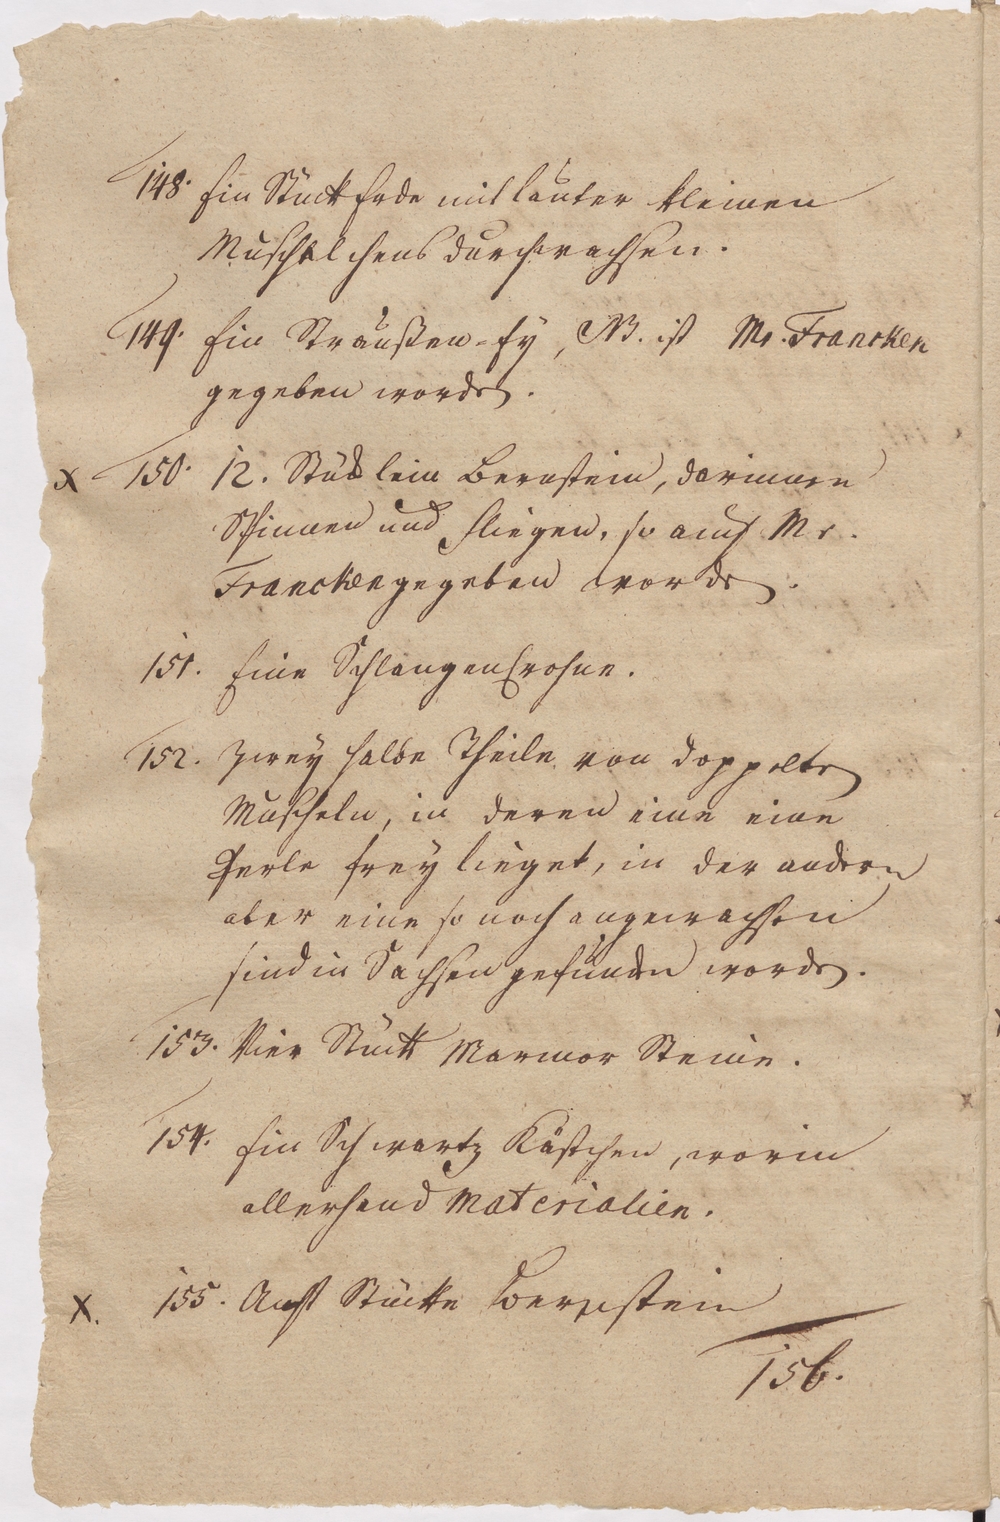 148. Ein Stück Erde mit lauter kleinen
Muschelchens durchwachsen.
149. Ein Straußen-Ey, NB. ist Mr. Francken
gegeben worden.
x 150. 12. Stücklein Bernstein, darinnen
Spinnen und Fliegen, so auch Mr.
Francken gegeben worden.
151. Eine Schlangen Crohne.
152. Zwey halbe Theile von doppelten
Muscheln, in deren eine eine
Perle frey lieget, in der andern
aber eine so noch angewachsen
sind in Sachsen gefunden worden.
153. Vier Stück Marmor Steine.
154. Ein Schwartz Kästchen, worin
allerhand Materialien.
X. 155. Acht Stücke Bernstein
156.